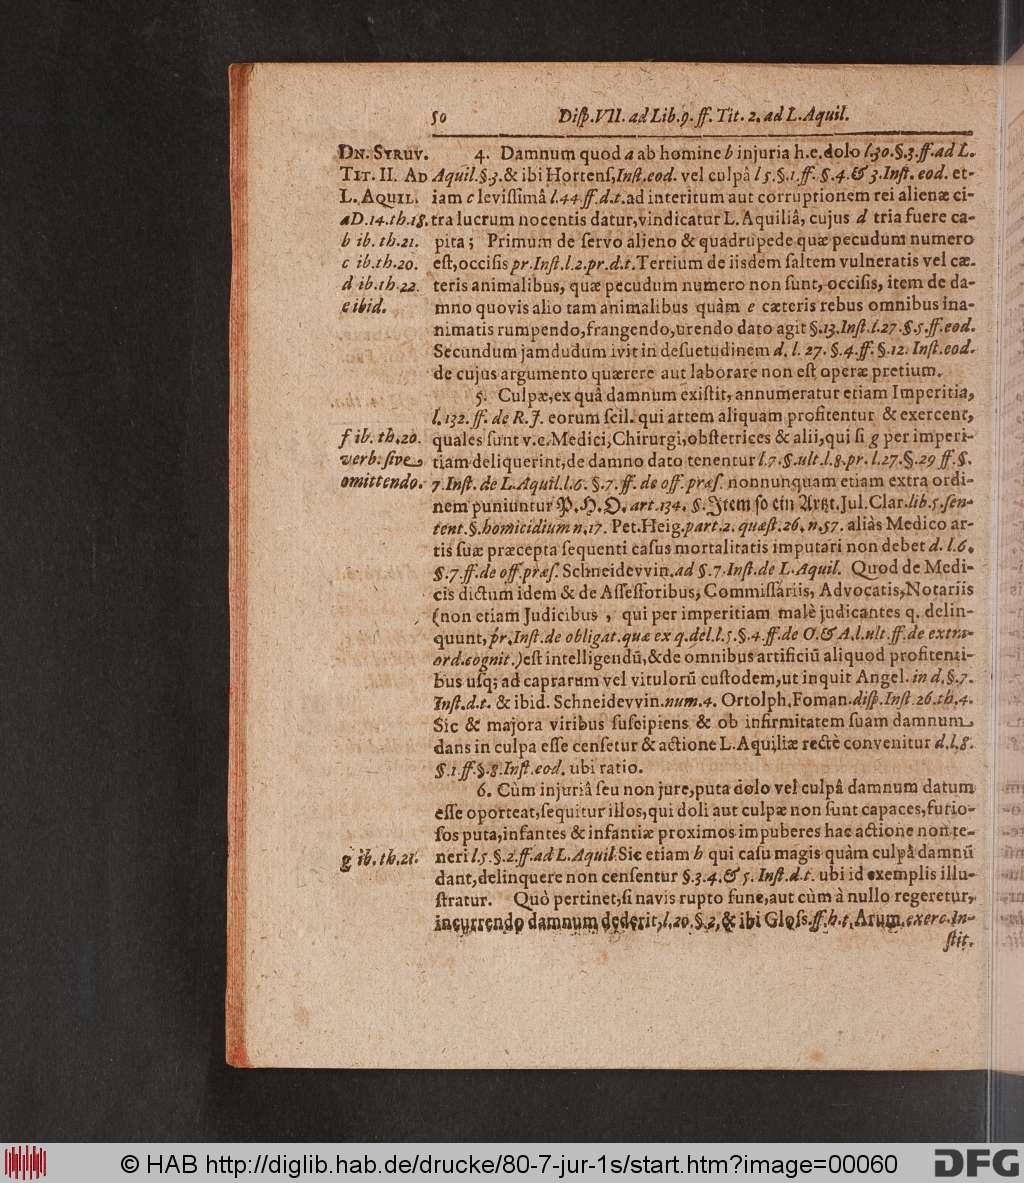 50 Diſp. VII. ad Lib. 9. ff. Tit. 2. ad L. Aquil.
DN. STRUV.
TIT. II. AD
L. AQUIL.
a D. 14. th. 18.
b ib. th. 21.
c ib. th. 20.
d ib. th. 22.
e ibid.
4. Damnum quod a ab homine b injuria h.e. dolo l. 30. §. 3. ff. ad L.
Aquil. §. 3. & ibi Hortenſ, Inſt. eod. vel culpâ l 5. §. 1. ff. §. 4. & 3. Inſt. eod. et-
iam c leviſſimâ l. 44. ff. d. t. ad interitum aut corruptionem rei alienæ ci-
tra lucrum nocentis datur, vindicatur L. Aquiliâ, cujus d tria fuere ca-
pita; Primum de ſervo alieno & quadrupede quæ pecudum numero
eſt, occiſis pr. Inſt. l. 2. pr. d. t. Tertium de iisdem ſaltem vulneratis vel cæ-
teris animalibus, quæ pecudum numero non ſunt, occiſis, item de da-
mno quovis alio tam animalibus quàm e cæteris rebus omnibus ina-
nimatis rumpendo, frangendo, urendo dato agit §. 13. Inſt. l. 27. §. 5. ff. eod.
Secundum jamdudum ivit in deſuetudinem d. l. 27. §. 4. ff. §. 12. Inſt. eod.
de cujus argumento quærere aut laborare non eſt operæ pretium.
5. Culpæ, ex quâ damnum exiſtit, annumeratur etiam Imperitia,
l. 132. ff. de R. J. eorum ſcil. qui artem aliquam profitentur & exercent,
f ib. th. 20.
verb. ſive
omittendo.
quales ſunt v.c. Medici, Chirurgi, obſtetrices & alii, qui ſi g per imperi-
tiam deliquerint, de damno dato tenentur l. 7. §. ult. l. 8. pr. l. 27. §. 29 ff. §.
7. Inſt. de L. Aquil. l. 6. §. 7. ff. de off. præſ. nonnunquam etiam extra ordi-
nem puniuntur P. H. O. art. 134. §. Item ſo ein Artzt. Jul. Clar. lib. 5. ſen-
tent. §. homicidium n. 17. Pet. Heig. part. 2. quæſt. 26. n. 57. aliàs Medico ar-
tis ſuæ præcepta ſequenti caſus mortalitatis imputari non debet d. l. 6.
§. 7. ff. de off. præſ. Schneidevvin. ad §. 7. Inſt. de L. Aquil. Quod de Medi-
cis dictum idem & de Aſſeſſoribus, Commiſſariis, Advocatis, Notariis
(non etiam Judicibus, qui per imperitiam malè judicantes q. delin-
quunt, pr. Inſt. de obligat. quæ ex q. del. l. 5. §. 4. ff. de O. & A. l. ult. ff. de extra-
ord. cognit.) eſt intelligendū, & de omnibus artificiū aliquod profitenti-
bus uſq; ad caprarum vel vitulorū cuſtodem, ut inquit Angel. in d. §. 7.
Inſt. d. t. & ibid. Schneidevvin. num. 4. Ortolph. Foman. diſp. Inſt 26. th. 4.
Sic & majora viribus ſuſcipiens & ob infirmitatem ſuam damnum
dans in culpa eſſe cenſetur & actione L. Aquiliæ rectè convenitur d. l. 8.
§. 1. ff. §. 8. Inſt. eod. ubi ratio.
6. Cùm injuriâ ſeu non jure, puta dolo vel culpâ damnum datum
eſſe oporteat, ſequitur illos, qui doli aut culpæ non ſunt capaces, furio-
ſos puta, infantes & infantiæ proximos impuberes hac actione non te-
g ib. th. 21.
neri l. 5. §. 2. ff. ad L. Aquil. Sic etiam h qui caſu magis quàm culpâ damnū
dant, delinquere non cenſentur §. 3. 4. & 5. Inſt. d. t. ubi id exemplis illu-
ſtratur. Quò pertinet, ſi navis rupto fune, aut cùm à nullo regeretur,
incurrendo damnum dederit, l. 20. §. 2, & ibi Gloſſ. ff. h. t. Arum. exerc. In-
ſtit.
© HAB http://diglib.hab.de/drucke/80-7-jur-1s/start.htm?image=00060
DFG